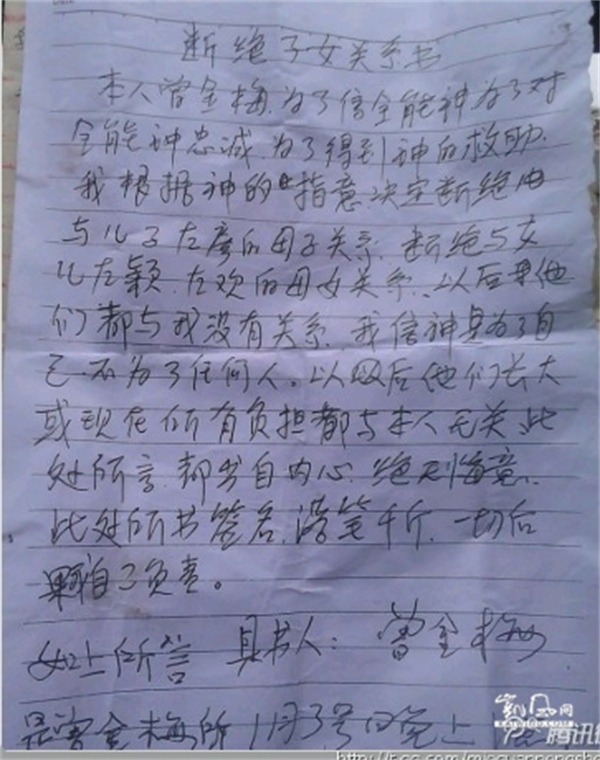 断绝子女关系书
本人曾金梅.为了信全能神为了对
全能神忠诚.为了得到神的救助.
我根据神的指意.决定断绝由
与儿子左彦的母子关系.断绝与女
儿左颖.左欢的母女关系.以后他
们都与我没有关系.我信神是为了自
己.不为了任何人。以后他们长大
或现在所有负担都与本人无关.此
处所言.都出自内心.绝无悔意.
此处所书签名.落笔千斤.一切后
果自己负责。
如上所言 具书人: 曾金梅
是曾金梅所1月3号的晚上
凯风网
KAIWIND.COM
腾讯微